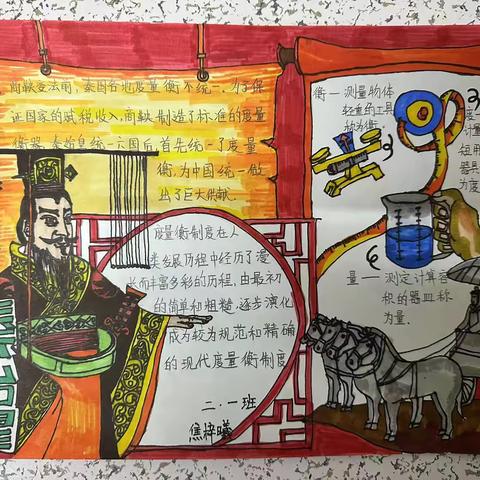 商鞅变法前，秦国各地度量衡不统一，为了保
证国家的赋税收入，商鞅制造了标准的度量
衡器，秦始皇统一六国后，首先统一了度量
衡，为中国统一做
出了巨大供献。
度量衡制度在人
类发展历程中经历了漫
长而丰富多彩的历程，由最初
的简单和粗糙，逐步演化
成为较为规范和精确
的现代度量衡制度
二．一班
焦梓曦
衡一测量物体
轻重的工具
称为衡
计量
短用
器具
为度
量一测定计算容
积的器皿称
为量．